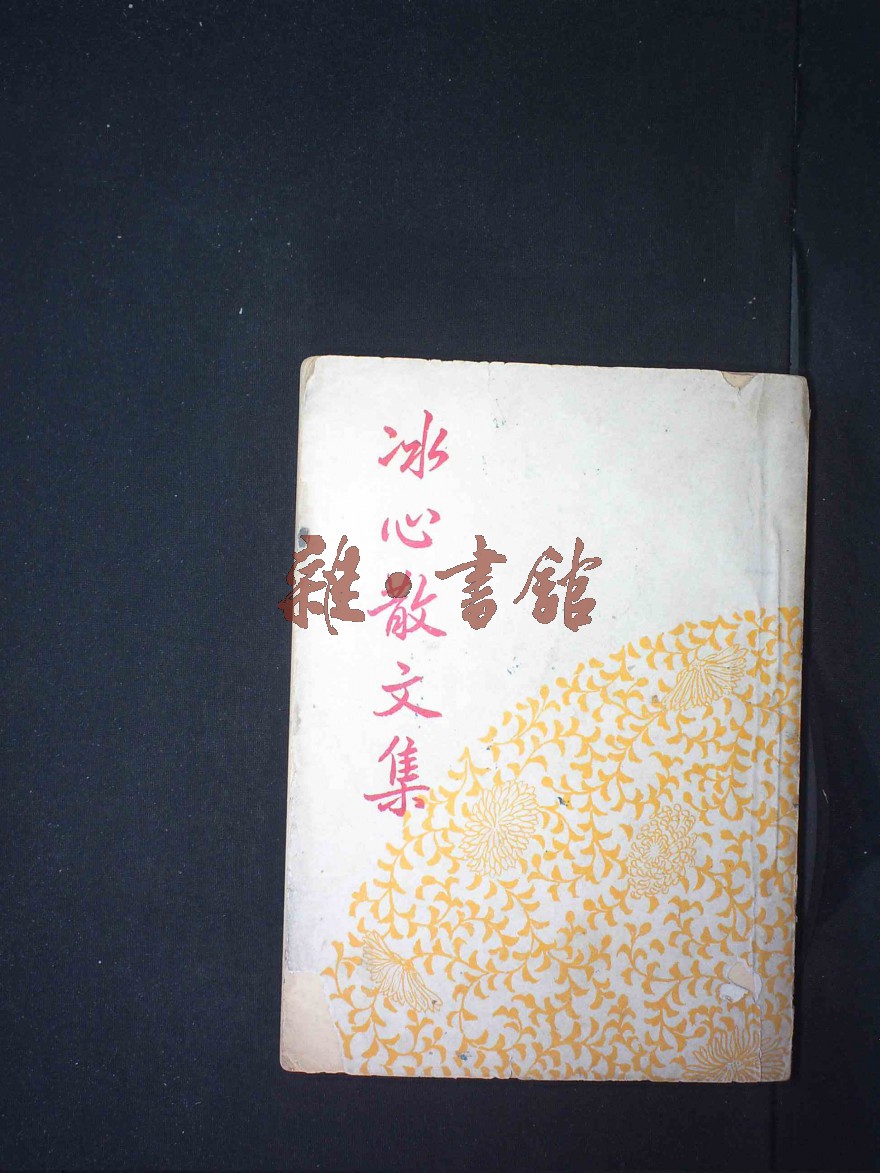 冰心散文集
雜·書館